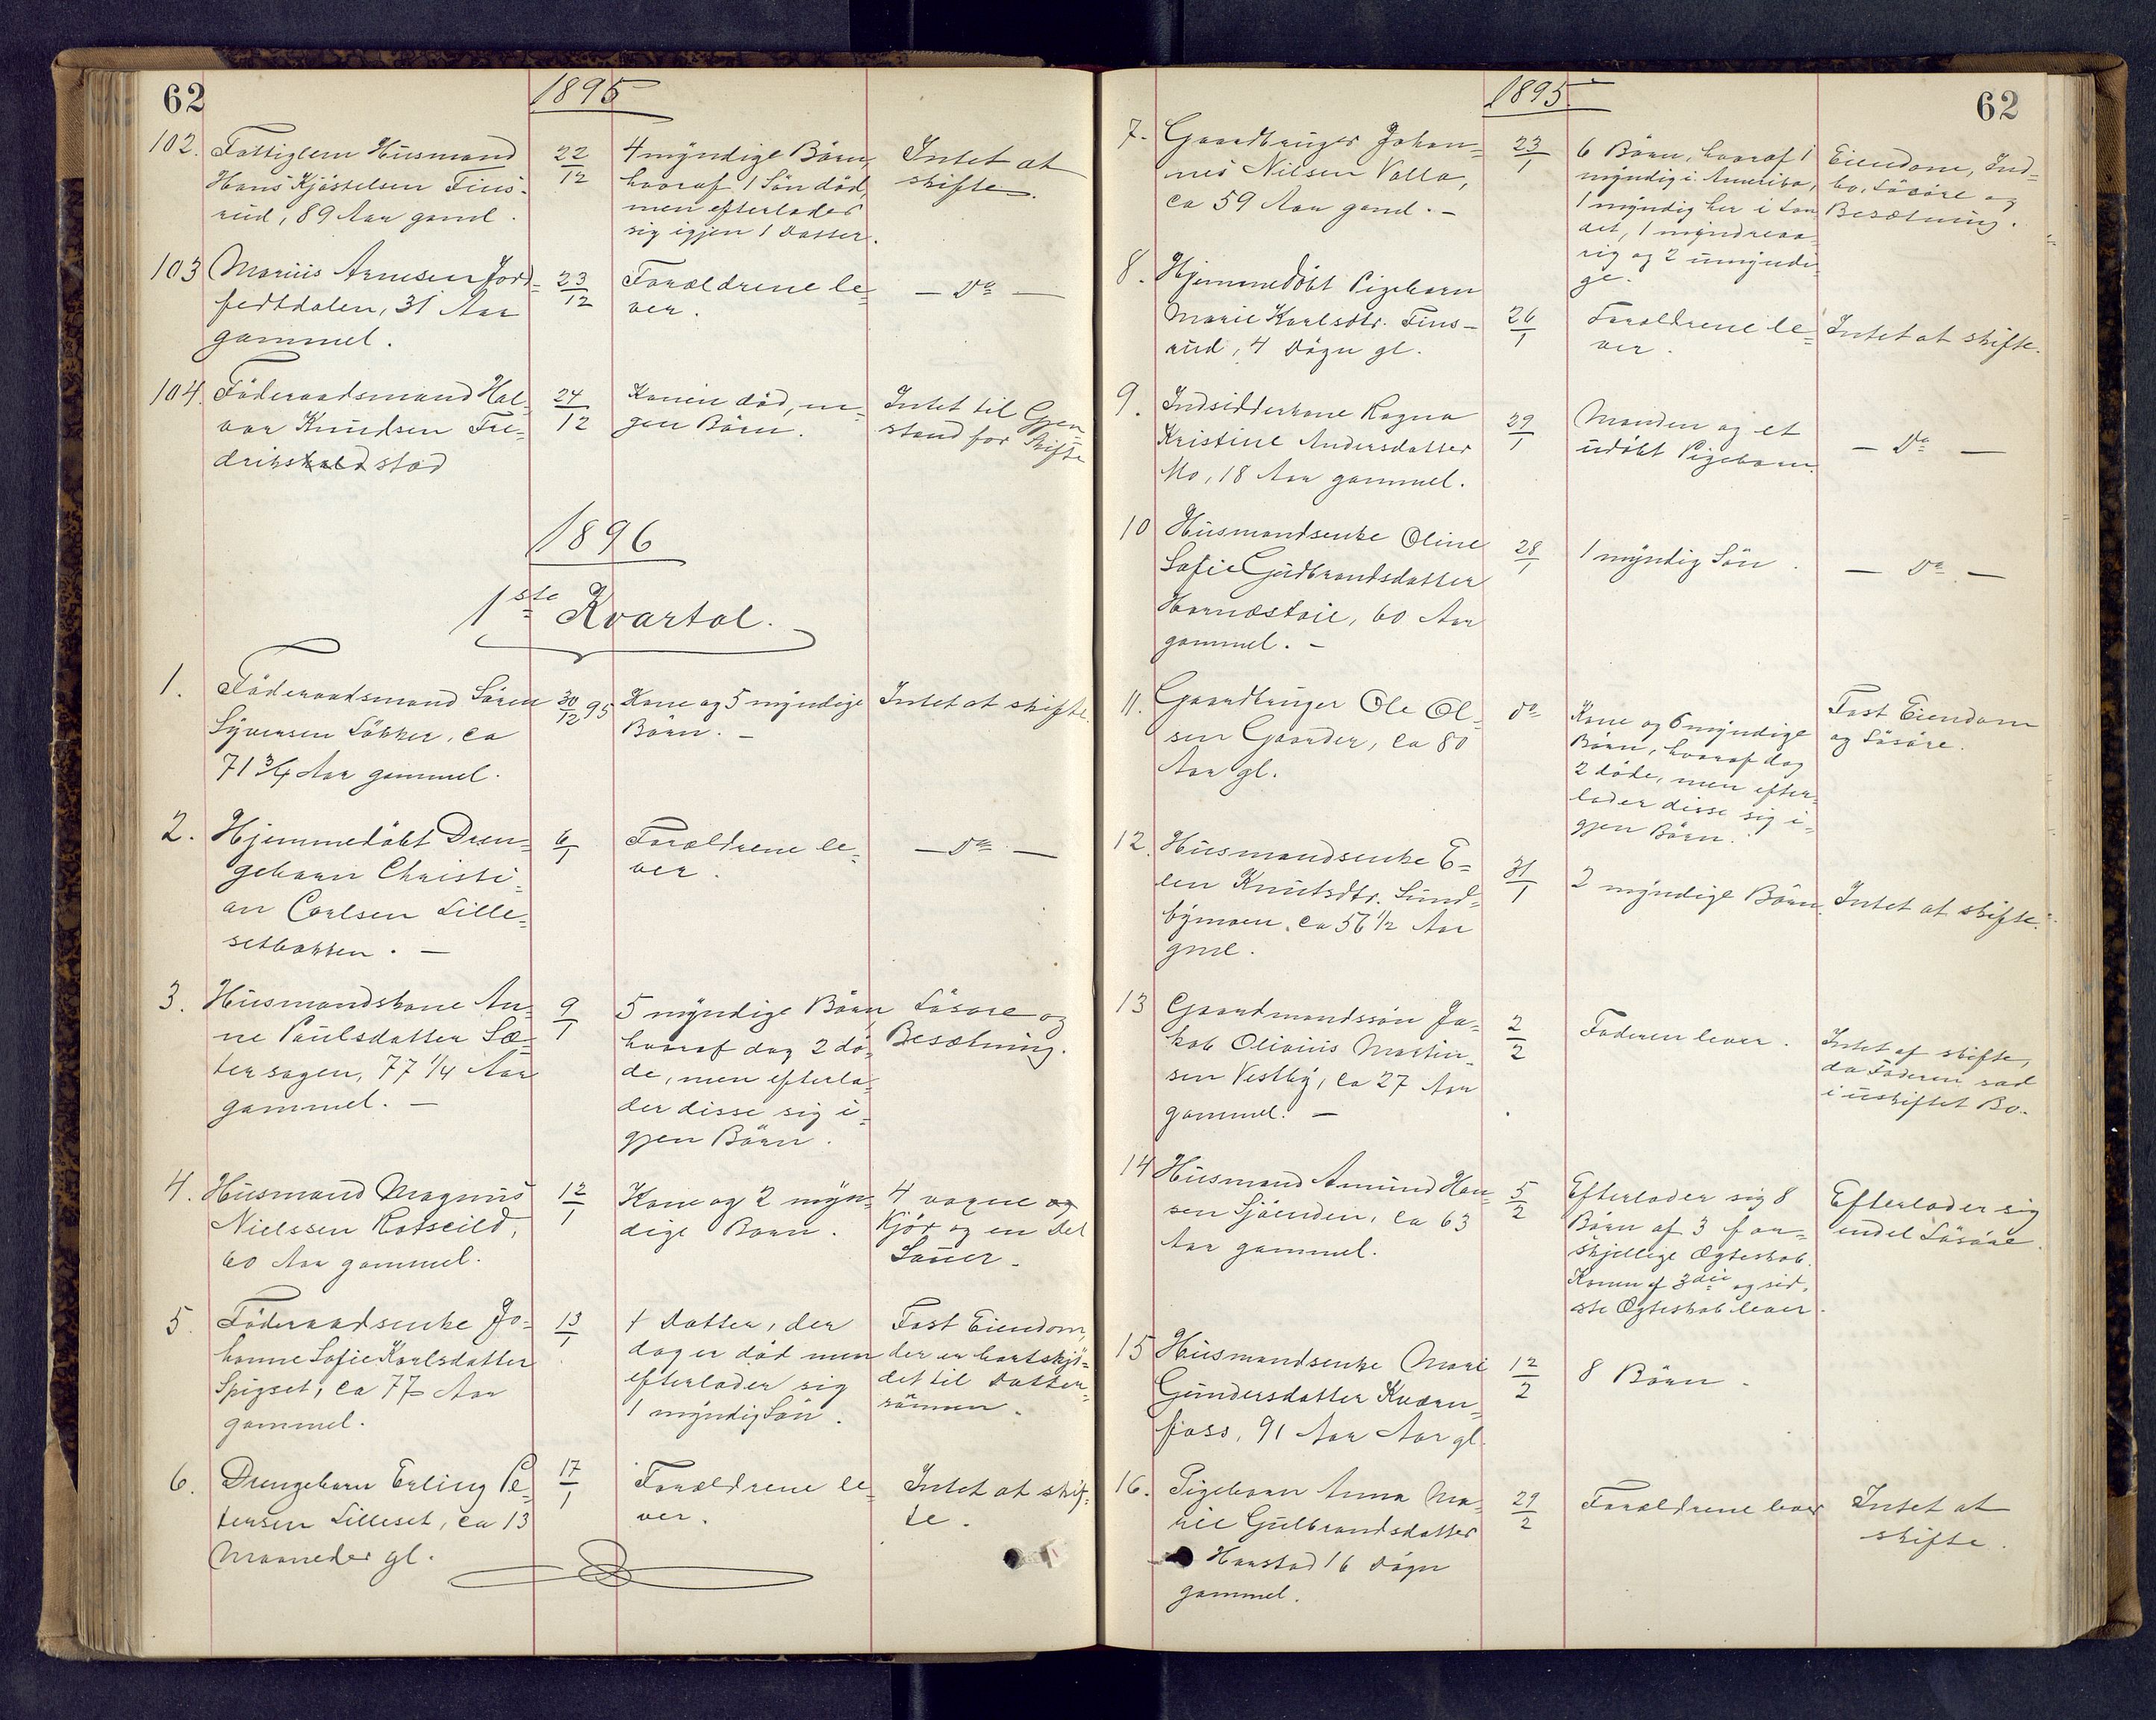 62
1895
102. Fattiglem Husmand
Hans Kjöstelsen Fins-
rud, 89 Aar gaml.
22/12
4 myndige Börn,
hvoraf 1 Sön död,
men efterlader
sig igjen 1 Datter.
Intet at
skifte.
103 Marius Arnesen Jord-
fedtdalen, 31 Aar
gammel.
23/12
Forældrene le-
ver.
— Do —
104. Föderaadsmand Hal-
vor Knudsen Fre-
drikshaldstad
24/12
Konen död, in-
gen Börn.
Intet til Gjen-
stand for Skifte
1896
1ste Kvartal.
1. Föderaadsmand Sören
Syversen Lökker, ca
71 3/4 Aar gammel.
30/12 95
Kone og 5 myndige
Börn. —
Intet at skifte.
2. Hjemmedöbt Dren-
gebarn Christi-
an Carlsen Lille-
setbakken. —
6/1
Forældrene le-
ver.
— Do —
3. Husmandskone An-
ne Paulsdatter Sæ-
tersagen, 77 1/4 Aar
gammel. —
9/1
5 myndige Börn
hvoraf dog 2 dö-
de, men efterla-
der disse sig i-
gjen Börn.
Lösöre og
Besætning.
4. Husmand Magnus
Nielssen Rotseild,
60 Aar gammel.
12/1
Kone og 2 myn-
dige Barn.
4 voxne og
Kjör og en Del
Sauer.
5. Föderaadsenke Jo-
hanne Sofie Karlsdatter
Spigset, ca 77 Aar
gammel.
13/1
1 Datter, der
dog er död men
efterlader sig
1 myndig Sön.
Fast Eiendom,
der er bortskjö-
det til Datter-
sönnen.
6. Drengebarn Erling Pe-
tersen Lilleset, ca 13
Maaneder gl.
17/1
Forældrene le-
ver.
Intet at skif-
te.
1895
62
7. Gaardbruger Johan-
nes Nilsen Valla,
ca 59 Aar gaml. —
23/1
6 Börn, hvoraf 1
myndig i Amerika,
1 myndig her i Lan
det, 1 myndreaa-
rig og 2 umyndi
ge.
Eiendom, Ind-
bo, Lösöre og
Besætning.
8. Hjemmedöbt Pigebarn
Marie Karlsdtr. Fins-
rud, 4 Dögn gl.
26/1
Forældrene le-
ver.
Intet at skifte.
9. Indsidderkone Ragna
Kristine Andersdatter
Mo, 18 Aar gammel.
29/1
Manden og et
udöbt Pigebarn.
— Do —
10 Husmandsenke Oline
Sofie Gudbrandsdatter
Harnæsteie, 60 Aar
gammel. —
28/1
1 myndig Sön.
— Do —
11. Gaardbruger Ole Ol-
sen Gaarder, ca 80
Aar gl.
Do
Kone og 6 myndige
Börn, hvoraf dog
2 döde, men efter-
lader disse sig i-
gjen Börn.
Fast Eiendom
og Lösöre.
12. Husmandsenke E-
len Knutsdtr. Sund-
bymoen, ca 56 1/2 Aar
gml.
31/1
2 myndige Börn
Intet at skifte.
13 Gaardmandssön Ja-
kob Olivius Martin-
sen Vestby, ca 27 Aar
gammel. —
2/2
Faderen lever.
Intet at skifte,
da Faderen sad
i uskiftet Bo.
14 Husmand Amund Han-
sen Sjöenden, ca 63
Aar gammel.
5/2
Efterlader sig 8
Börn af 3 for-
skjellige Ægteskab.
Konen af 3die og sid-
ste Ægteskab lever.
Efterlader sig
endel Lösöre.
15 Husmandsenke Mari
Gundersdatter Kværn-
foss, 91 Aar Aar gl.
12/2
8 Börn.
16. Pigebarn Anna Ma-
rie Gulbrandsdatter
Harstad 16 Dögn
gammel.
29/2
Forældrene lever
Intet at
skifte.